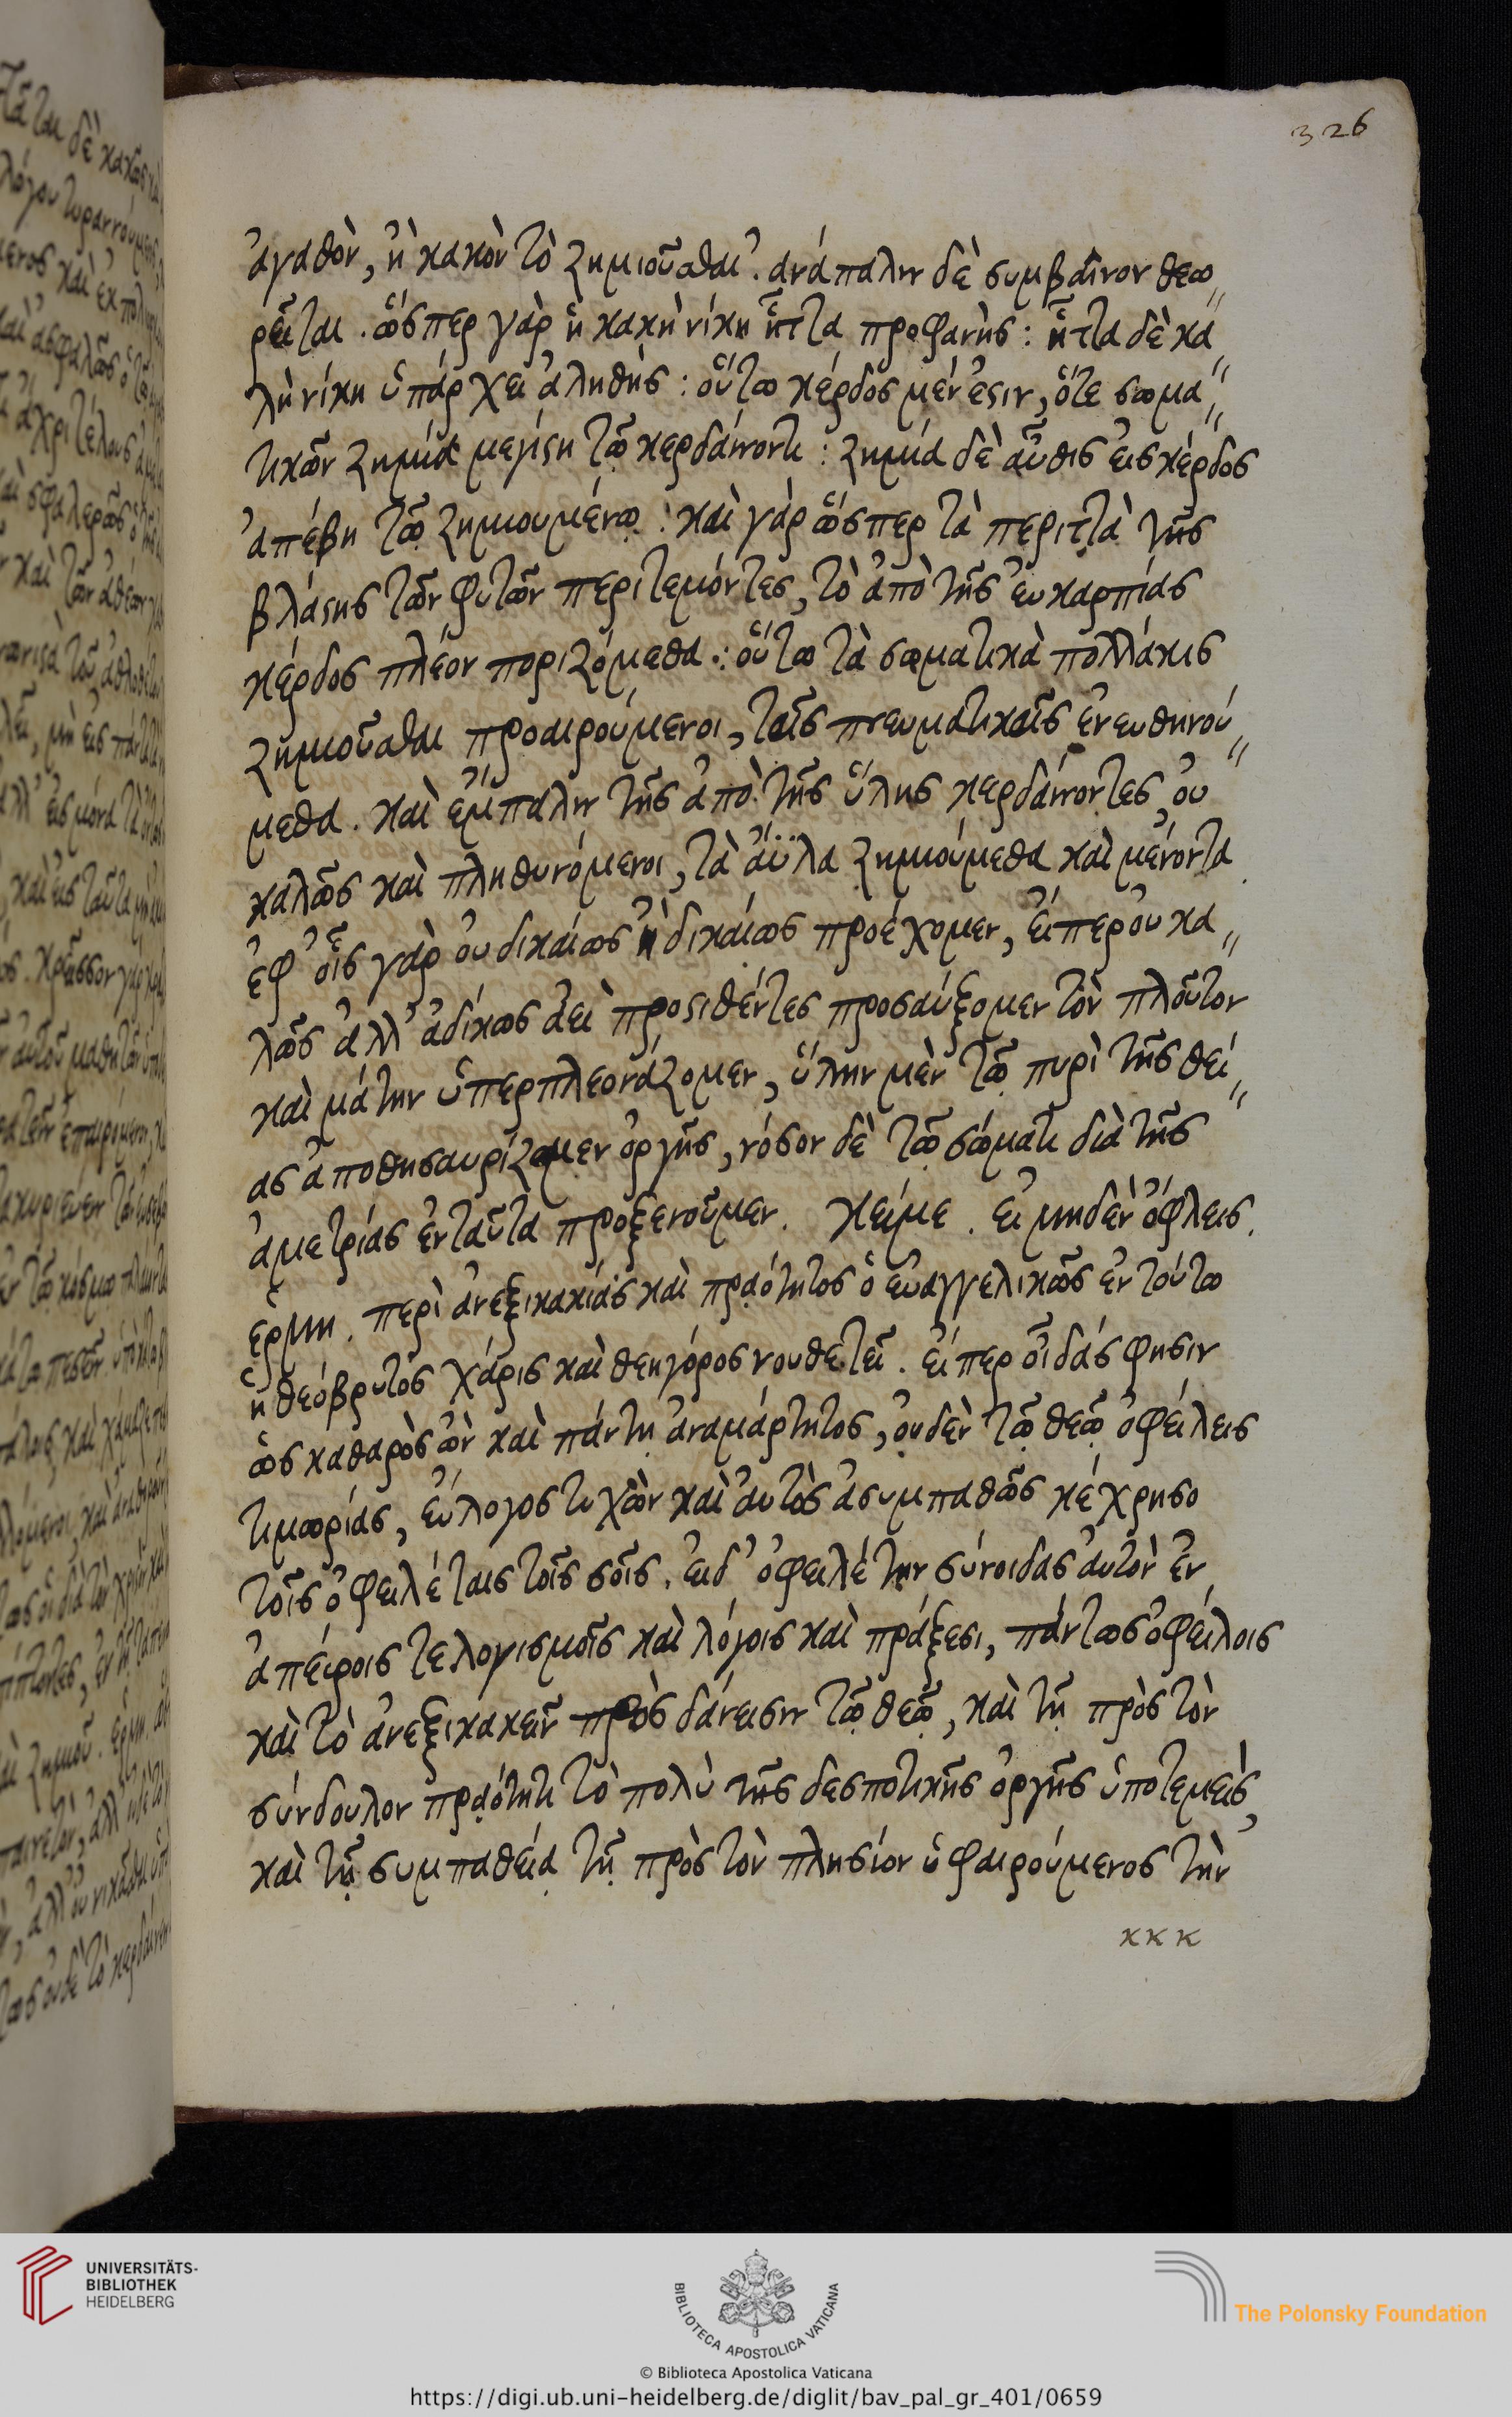 326
ἀγαθὸν, ἢ κακὸν τὸ ζημιοῦσθαι. ἀνάπαλιν δὲ συμβαῖνον θεω
ρεῖται. ὥσπερ γὰρ ἡ κακὴ νίκη ἧττα προφανὴς: ἧττα δὲ κα
λὴ νίκη ὑπάρχει ἀληθής: οὕτω κέρδος μέν ἐστιν, ὅτε σωμα
τικῶν ζημία μεγίστη τῷ κερδαίνοντι: ζημία δὲ αὖθις εἰς κέρδος
ἀπέβη τῷ ζημιουμένῳ: καὶ γὰρ ὥσπερ τὰ περιττὰ τῆς
βλάστης τῶν φυτῶν περιτεμόντες, τὸ ἀπὸ τῆς εὐκαρπίας
κέρδος πλέον ποριζόμεθα: οὕτω τὰ σωματικὰ πολλάκις
ζημιοῦσθαι προαιρούμενοι, ταῖς πνευματικαῖς ἐνευθηνού
μεθα. καὶ ἔμπαλιν τῆς ἀπὸ τῆς ὕλης κερδαίνοντες, οὐ
καλῶς καὶ πληθυνόμενοι, τὰ ἄϋλα ζημιούμεθα καὶ μένοντα.
ἐφ' οἷς γὰρ οὐ δικαίως ἢ δικαίως προέχομεν, εἴπερ οὐ κα
λῶς ἀλλ' ἀδίκως ἀεὶ προστιθέντες προσαύξομεν τὸν πλοῦτον
καὶ μάτην ὑπερπλεονάζομεν, ὕλην μὲν τῷ πυρὶ τῆς θεί
ας ἀποθησαυρίζομεν ὀργῆς, νόσον δὲ τῷ σώματι διὰ τῆς
ἀμετρίας ἐνταῦτα προξενοῦμεν. κείμε. εἰ μηδὲν ὀφλεις.
ἑρμη. περὶ ἀνεξικακίας καὶ πραότητος ὁ εὐαγγελικῶς ἐν τούτω
ἡ θεόβρυτος χάρις καὶ θεηγόρος νουθετεῖ. εἴπερ οἶδάς φησιν
ὡς καθαρὸς ὢν καὶ πάντη ἀναμάρτητος, οὐδὲν τῷ θεῷ ὀφείλεις
τιμωρίας, εὔλογος τυχὸν καὶ αὐτὸς ἀσυμπαθῶς κέχρησο
τοῖς ὀφειλέταις τοῖς σοῖς. εἰ δ' ὀφειλέτην σύνοιδας αὐτὸν ἐν
ἀπείροις τε λογισμοῖς καὶ λόγοις καὶ πράξεσι, πάντως ὀφείλοις
καὶ τὸ ἀνεξικακεῖν πρὸς δάνεισιν τῷ θεῷ, καὶ τῇ πρὸς τὸν
σύνδουλον πραότητι τὸ πολὺ τῆς δεσποτικῆς ὀργῆς ὑποτεμεῖς,
καὶ τῇ συμπαθείᾳ τῇ πρὸς τὸν πλησίον ὑφαιρούμενος τὴν
κκκ
UNIVERSITÄTS-
BIBLIOTHEK
HEIDELBERG
BIBLIOTECA APOSTOLICA VATICANA
The Polonsky Foundation
© Biblioteca Apostolica Vaticana
https://digi.ub.uni-heidelberg.de/diglit/bav_pal_gr_401/0659